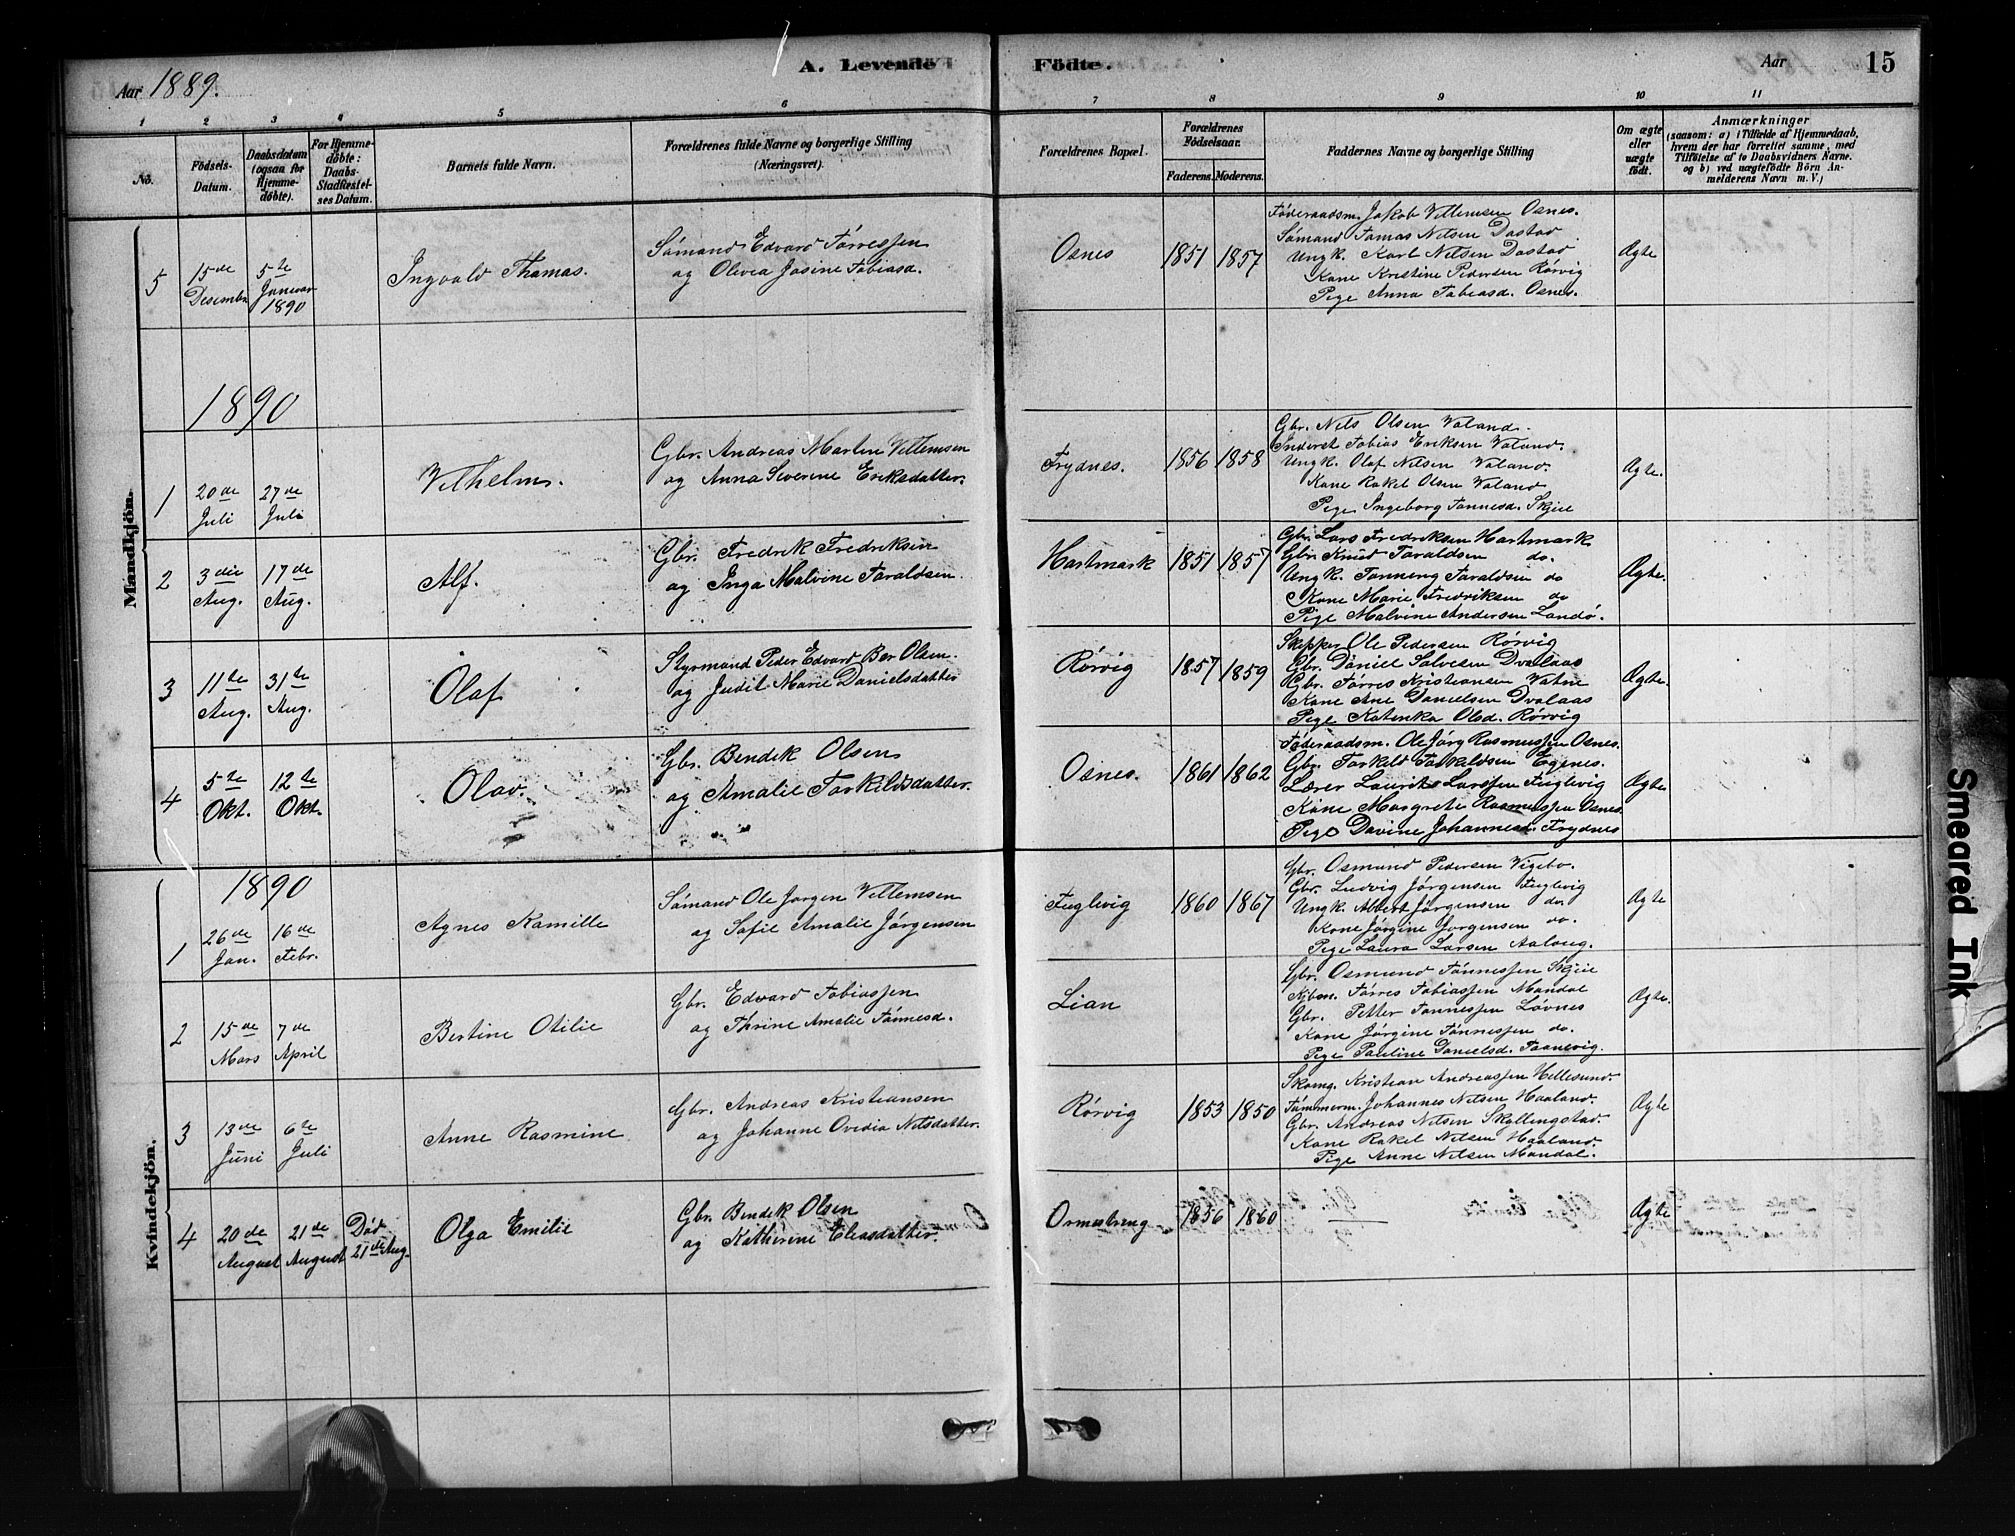 Aar 1889.
A. Levende
Födte.
Aar
15
1 2 3 4 5 6 7 8 9 10 11
No.
Födsels-Datum.
Daabsdatum (ogsaa for Hjemmedøbte).
For Hjemmedøbte: Daabs-Stadfestelses Datum.
Barnets fulde Navn.
Forældrenes fulde Navne og borgerlige Stilling (Næringsvei).
Forældrenes Bopæl.
Forældrenes Födselsaar.
Faderens.
Moderens.
Faddernes Navne og borgerlige Stilling
Om ægte eller uægte födt.
Anmærkninger
(saasom: a) i Tilfælde af Hjemmedaab,
hvem der har forrettet samme, med
Tilføielse af to Daabsvidners Navne.
og b) ved uægtefödte Börn An-
melderens Navn m. V.)
Mandkjön.
5
15de Desembr
5te Januar 1890
Ingvald Thomas.
Sømand Edvard Tørressen
og Olivea Josine Tobiasd.
Osnes
1851
1857
Føderaadsm. Jakob Villemsen Osnes.
Sømand Tomas Nilsen Dastad
Ungk. Karl Nilsen Dastad
Kone Kristine Pedersen Rørvig
Pige Anna Tobiasd. Osnes.
Ægte
1890
1
20de Juli
27de Juli
Vilhelm.
Gbr. Andreas Martin Villemsen
og Anna Severine Eriksdatter.
Frydnes.
1856
1858
Gbr. Nils Olsen Valand.
Inderst Tobias Eriksen Valand.
Ungk. Olaf Nilsen Valand.
Kone Rakel Olsen Valand
Pige Ingeborg Tønnesd. Skjeie
Ægte.
2
3die Aug.
17de Aug.
Alf.
Gbr. Fredrik Fredriksen
og Inga Malvine Taraldsen.
Hartmark
1851
1857
Gbr. Lars Fredriksen Hartmark
Gbr. Knud Taraldsen do.
Ungk. Tønneng Taraldsen do
Kone Marie Fredriksen do
Pige Malvine Andersen Landø.
Ægte.
3
11te Aug.
31te Aug.
Olaf
Styrmand Peder Edvard Ber Olsen.
og Judit Marie Danielsdatter
Rørvig
1857
1859
Skipper Ole Pedersen Rørvig
Gbr. Daniel Salvesen Dvalaas
Gbr. Tørres Kristiansen Vatne
Kone Ane Danielsen Dvalaas
Pige Katinka Olsd. Rørvig
Ægte.
4
5te Okt.
12te Okt.
Olav.
Gbr. Bendik Olsen
og Amalie Torkildsdatter.
Osnes.
1861
1862
Føderaadsm. Ole Jørg Rasmussen Osnes.
Gbr. Torkild Torkildsen Egenes.
Lærer Laurits Larssen Fuglevig
Kone Margrete Rasmussen Osnes.
Pige Davine Johannesd. Frydnes
Ægte.
Kvindekjön.
1890
1
26de Jan.
16de Febr.
Agnes Kamille
Sømand Ole Jørgen Villemsen
og Sofie Amalie Jørgensen
Fuglevig
1860
1867
Gbr. Osmund Pedersen Vigebo.
Gbr. Ludvig Jørgensen Fuglevig
Ungk. Albert Jørgensen do.
Kone Jørgine Jørgensen do.
Pige Laura Larsen Aalong.
Ægte
2
15de Mars
7de April
Bertine Otilie
Gbr. Edvard Tobiassen
og Thrine Amalie Tønnesd.
Lian
Gbr. Osmund Tønnessen Skjeie
Kjbm. Tørres Tobiassen Mandal
Gbr. Petter Tønnessen Løvnes
Kone Jørgine Tønnessen do.
Pige Pauline Danielsd. Taanevig.
Ægte.
3
13de Juni
6te Juli
Anne Rasmine
Gbr. Andreas Kristiansen
og Johanne Ovidia Nilsdatter.
Rørvig
1853
1850
Skomg. Kristian Andreassen Hellesund.
Tømmerm. Johannes Nilsen Haaland.
Gbr. Andreas Nilsen Skyllingstad.
Kone Rakel Nilsen Haaland.
Pige Anne Nilsen Mandal.
Ægte
4
20de August
21de August
Død 21de Aug.
Olga Emilie
Gbr. Bendik Olsen
og Katherine Eleasdatter.
Ormestrong
1856
1860
Ægte
Smeared Ink